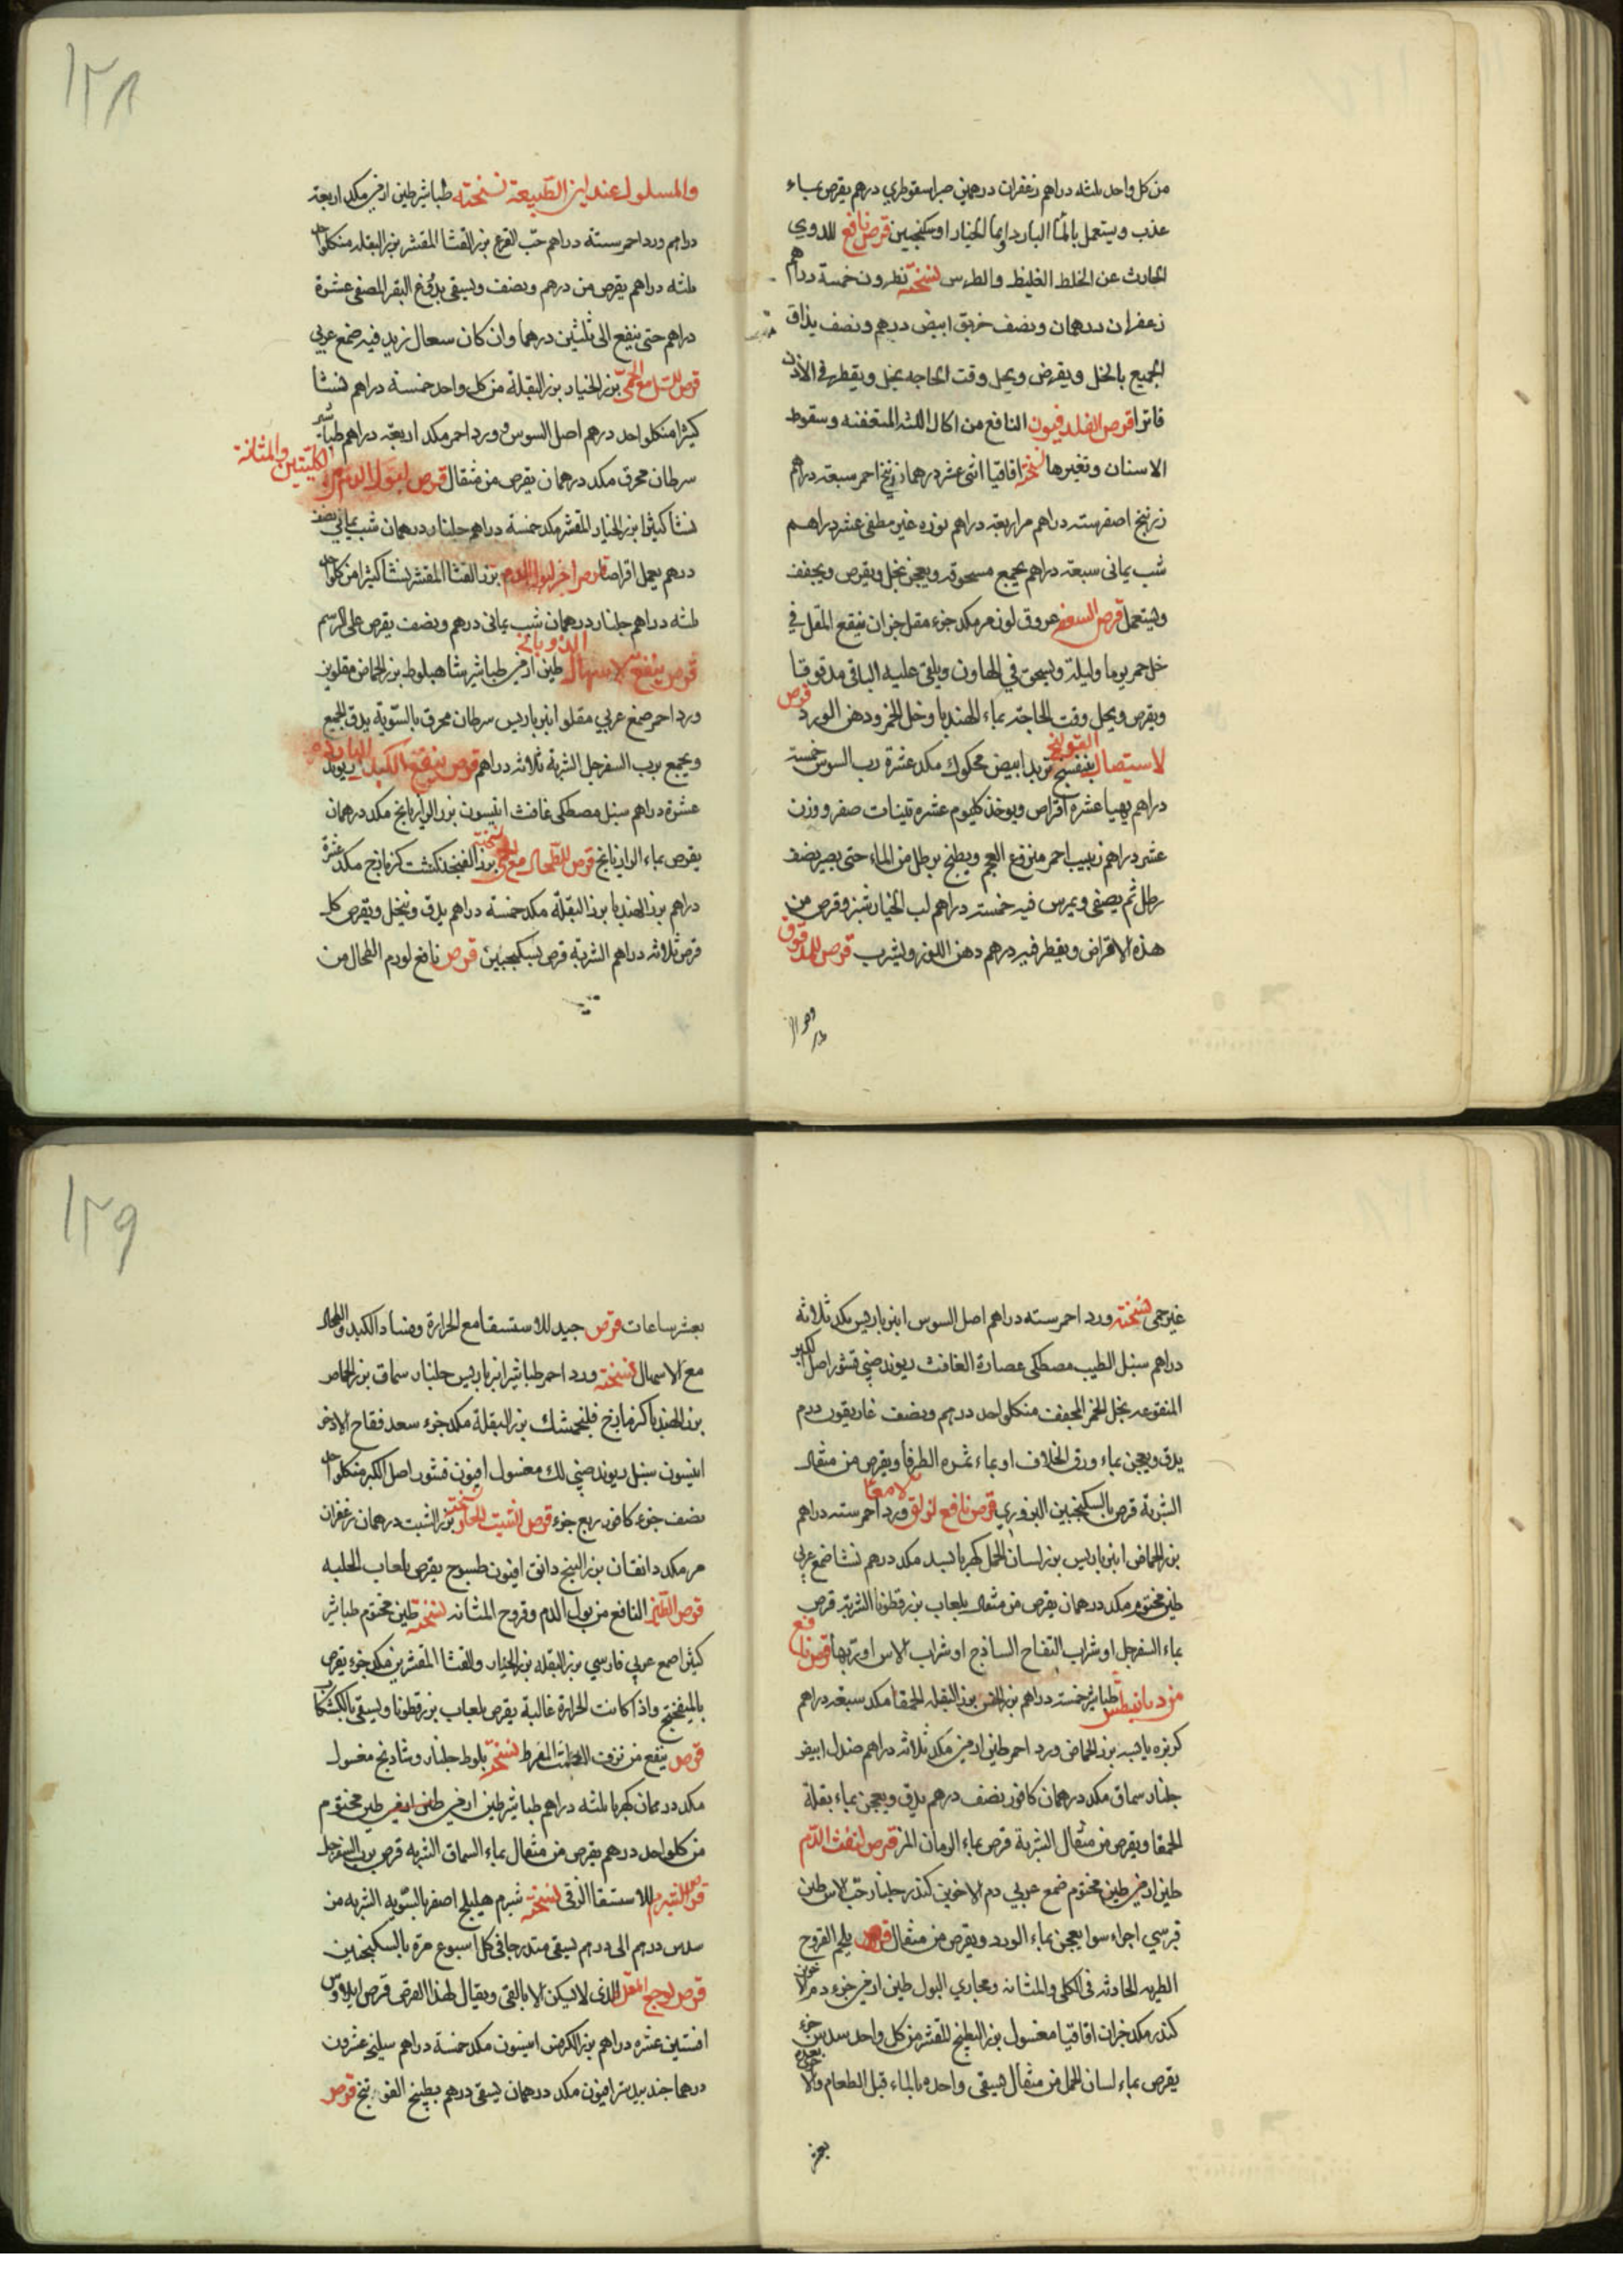 من كل واحد ثلثه دراهم زعفران درهمين صبر اسقوطري درهم يقرص بماء
عذب ويستعمل بالماء البارد او بماء الخيار او سكنجبين قرص نافع للدوي
الحادث عن الخلط الغليظ والطرس نسخته نطرون خمسة دراهم
زعفران درهمان ونصف خربق ابيض درهم ونصف يذاق
الجميع بالخل ويقرص ويحل وقت الحاجه بخل ويقطر في الاذن
فاترا قرص الفلدفيون النافع من اكال اللثه المتعفنه وسقوط
الاسنان وتغيرها نسخته اقاقيا اثني عشر درهما زرنيخ احمر سبعة دراهم
زرنيخ اصفر سته دراهم مر اربعة دراهم نوره غير مطفى عشر دراهم
شب يماني سبعة دراهم يجمع مسحوقه ويعجن بخل ويقرص ويجفف
ويستعمل قرص السعفه عروق لوز مر مكد جزء مقل جزان ينقع المقل في
خل خمر يوما وليلة ويسحق في الهاون ويلقى عليه الباقي مدقوقا
ويقرص ويحل وقت الحاجة بماء الهندبا وخل الخمر ودهن الورد قرص
لاستيصال القولنج بنفسج تربد ابيض محكوك مكد عشرة رب السوس خمسة
دراهم يهيا عشرة اقراص ويوخذ كليوم عشره تينات صفر ووزن
عشر دراهم زبيب احمر منزوع العجم ويطبخ برطل من الماء حتى يصير نصف
رطل ثم يصفى ويمرس فيه خمسه دراهم لب الخيارشنبر وقرص من
هذه الاقراص ويقطر فيه درهم دهن اللوز ويشرب قرص للمدقوق
١٢٨
والمسلول عند لين الطبيعة نسخته طباشير طين ارمني مكد اربعة
دراهم ورد احمر ستة دراهم حب القرع بزر القثا المقشر بزر البقله منكلواحد
ثلثه دراهم يقرص من درهم ونصف ويسقى بدوغ البقر المصفى عشرة
دراهم حتى ينفع الى ثلثين درهما وان كان سعال زيد فيه صمغ عربي
قرص للسل مع الحمى بزر الخيار بزر البقلة من كل واحد خمسة دراهم نشا
كثيرا منكلواحد درهم اصل السوس ورد احمر مكد اربعة دراهم طباشير
سرطان محرق مكد درهمان يقرص من مثقال قرص لبول الدم من الكليتين والمثانة
نشا كثيرا بزر الخيار المقشر مكد خمسة دراهم جلنار درهمان شب يماني نصف
درهم يعمل اقراصا قرص اخر لبول الدم بزر القثا المقشر نشا كثيرا من كلواحد
ثلثه دراهم جلنار درهمان شب يماني درهم ونصف يقرص على الرسم
قرص ينفع للاسهال الذوباني طين ارمني طباشير شاهبلوط بزر الحماض مقلوين
ورد احمر صمغ عربي مقلو انبرباريس سرطان محرق بالسوية يدق الجميع
ويجمع برب السفرجل الشربة ثلاثه دراهم قرص ينفع الكبد البارده ريوند
عشرة دراهم سنبل مصطكي غافث انيسون بزر الرازيانج مكد درهمان
يقرص بماء الرازيانج قرص للطحال مع الحمى نسخته بزر الفنجنكشت كزمازج مكد عشرة
دراهم بزر الهندبا بزر البقلة مكد خمسة دراهم يدق وينخل ويقرص كل
قرص ثلاثه دراهم الشربة قرص بسكنجبين قرص نافع لورم الطحال من
غير حمى نسخته ورد احمر سته دراهم اصل السوس انبرباريس مكد ثلاثه
دراهم سنبل الطيب مصطكي عصارة الغافث ريوند صيني قشور اصل الكبر
المنقوعه بخل الخمر المجفف منكلواحد درهم ونصف غاريقون درهم
يدق ويعجن بماء ورق الخلاف او بماء ثمره الطرفا ويقرص من مثقال
الشربة قرص بالسكنجبين البزوري قرص نافع لزلق الامعا ورد احمر سته دراهم
بزر الحماض انبرباريس بزر لسان الحمل كهربا بسد مكد درهم نشا صمغ عربي
طين مختوم مكد درهمان يقرص من مثقال بلعاب بزرقطونا الشربة قرص
بماء السفرجل او شراب التفاح الساذج او شراب الاس او بربها قرص نافع
من ديابيطس طباشير خمسة دراهم بزر الخس بزر البقله الحمقا مكد سبعه دراهم
كزبره يابسه بزر الحماض ورد احمر طين ارمني مكد ثلاثه دراهم صندل ابيض
جلنار سماق مكد درهمان كافور نصف درهم يدق ويعجن بماء بقلة
الحمقا ويقرص من مثقال الشربة قرص بماء الرمان المز قرص لنفث الدم
طين ارمني طين مختوم صمغ عربي دم الاخوين كندر جلنار حب الاس طين
قبرسي اجزاء سوا يعجن بماء الورد ويقرص من مثقال قرص يلحم القروح
الطريه الحادثه في الكلى والمثانه ومجاري البول طين ارمني جزء دم الاخوين
كندر مكد جزان اقاقيا مغسول بزر البطيخ المقشر من كل واحد سدس جزء
يقرص بماء لسان الحمل من مثقال فيسقى واحده بالماء قبل الطعام والاخرى بعده
بعشر
١٢٩
بعشر ساعات قرص جيد للاستسقا مع الحرارة وفساد الكبد والطحال
مع الاسهال نسخته ورد احمر طباشير انبرباريس جلنار سماق بزر الحماض
بزر الهندبا كزمازج فلنجمشك بزر البقلة مكد جزء سعد فقاح الاذخر
انيسون سنبل ريوند صيني لك مغسول افيون قشور اصل الكبر منكلواحد
نصف جزء كافور ربع جزء قرص الشبت للحار نسخته بزر الشبت درهمان زعفران
مر مكد دانقان بزر البنج دانق افيون طسوج يقرص بلعاب الحلبه
قرص الطين النافع من بول الدم وقروح المثانه نسخته طين مختوم طباشير
كثيرا صمغ عربي فارسي بزر البقله بزر الخيار والقثا المقشرين مكد جزء يقرص
بالميفختج واذا كانت الحرارة غالبة يقرص بلعاب بزرقطونا ويسقى بالكشكاب
قرص ينفع من نزف الطمث المفرط نسخته بلوط جلنار وشاذنج مغسول
مكد درهمان كهربا ثلثه دراهم طباشير طين ارمني طين مختوم
من كلواحد درهم يقرص من مثقال بماء السماق الشربه قرص برب السفرجل
قرص الشبرم للاستسقا الزقي نسخته شبرم هليلج اصفر بالسويه الشربه من
سدس درهم الى درهم يسقى متدرجا في كل اسبوع مرة بالسكنجبين
قرص لوجع المعدة الذي لا يسكن الا بالقي ويقال لهذا القرص قرص ايلاوس
افسنتين عشره دراهم بزر الكرفس انيسون مكد خمسة دراهم سليخه عشرون
درهما جندبيدستر افيون مكد درهمان يسقى درهم بطبيخ الفوتنج قرص